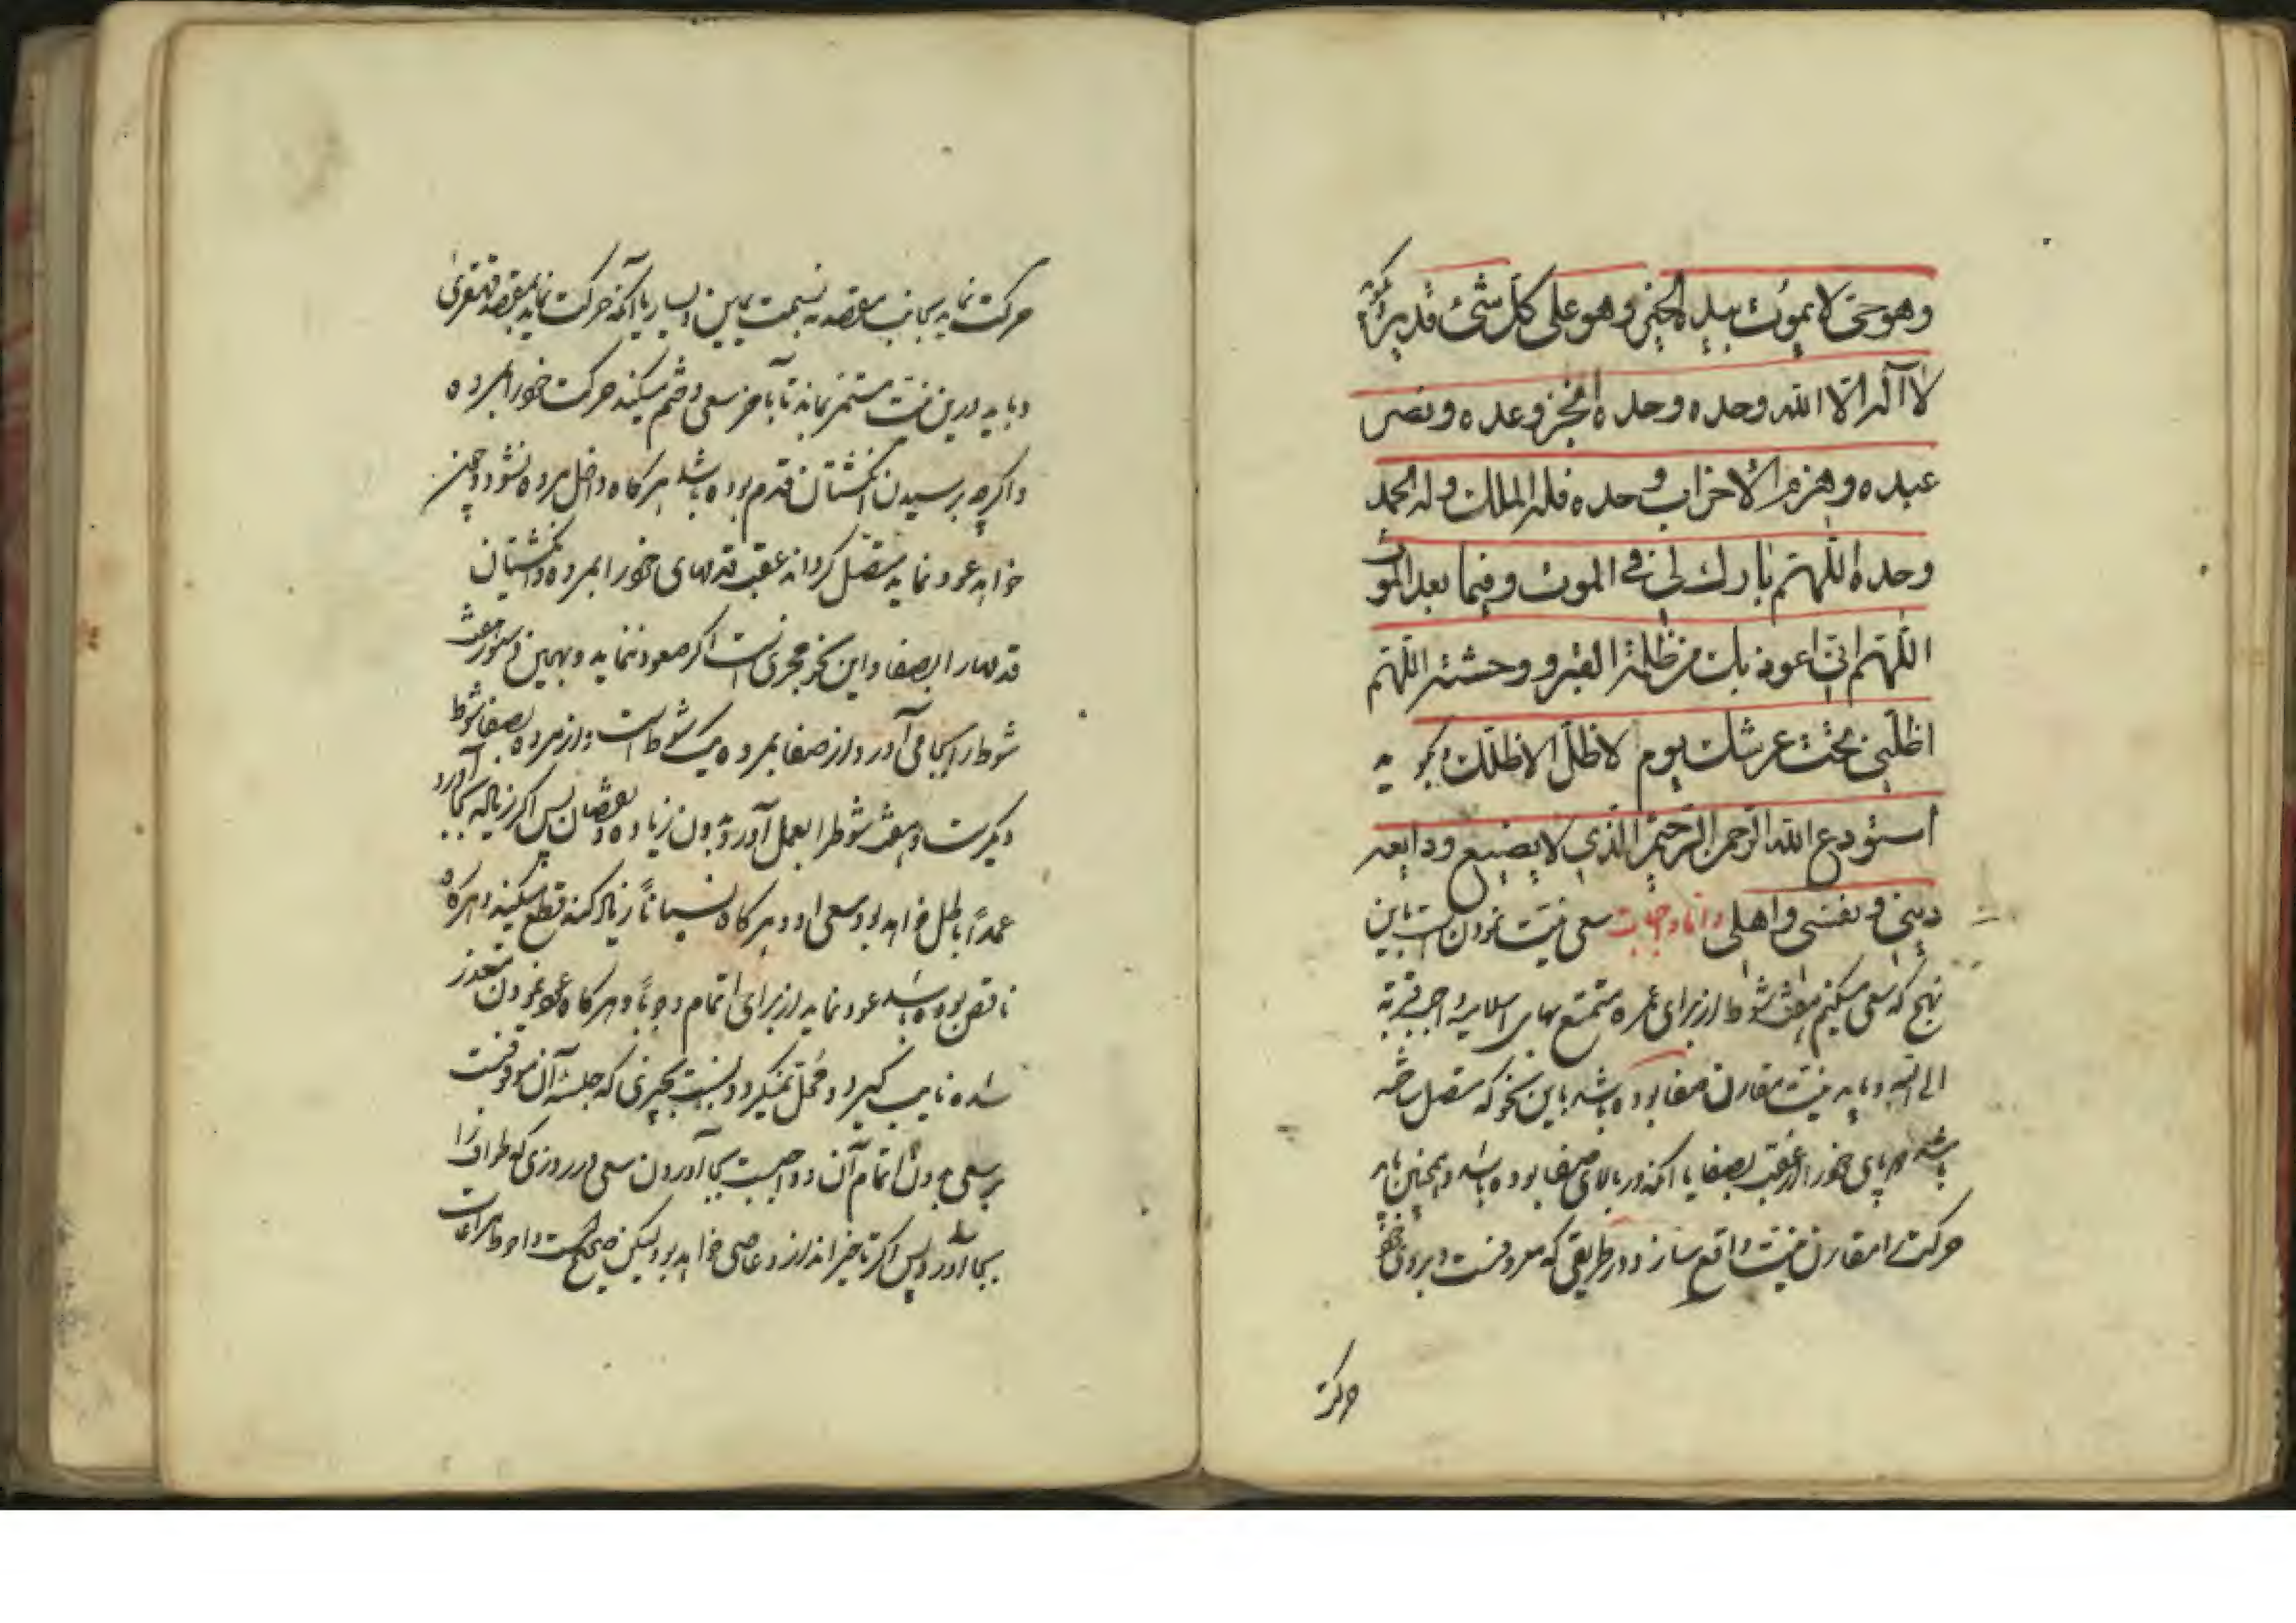 وهو حی لا یموت بیده الخیر وهو علی کل شئ قدیر
لا آله الا الله وحده وحده انجز وعده ونصر
عبده وهزم الاحزاب وحده فله الملک وله الحمد
وحده اللهم بارک لی فی الموت وفیما بعد الموت
اللهم انی اعوذ بک من ظلمة القبر ووحشته اللهم
اظلنی تحت عرشک یوم لا ظل الا ظلک وبگوید
استودع الله الرحمن الرحیم الذی لا یضیع ودایعه
دینی ونفسی واهلی واما واجبات سعی نیت نمودن است باین
نهج که سعی میکنیم هفت شوط از برای عمره تمتع بهای اسلامیة واجب قربة
الی الله و باید نیت مقارن صفا بوده باشد باین نحو که متصل ساخته
باشد پای خود را از عقب بصفا یا آنکه در بالای صفا بوده باشد و همچنین باید
حرکت را مقارن نیت واقع سازد و در طریقی که معروفست برود
حرکت
حرکت نماید بجانب مقصد نه بسمت یمین و یسار یا آنکه حرکت نماید بمقصد قهقری
و باید در این نیت مستمر بماند تا بآخر سعی و ختم میکند حرکت خود را بمروه
و اگرچه برسیدن انگشتان قدم بوده باشد هر گاه داخل مروه نشود و چون
خواهد عود نماید متصل گرداند عقب قدمهای خود را بمروه و انگشتان
قدمها را بصفا و این نحو مجزی است اگر صعود ننماید و بهمین دستور هفت
شوط را بجا می آورد و از صفا بمروه یک شوط است و از مروه بصفا شوط
دیگر است و هفت شوط را بعمل آورد بدون زیاده و نقصان پس اگر زیاده بجا آورد
عمداً باطل خواهد بود سعی او و هر گاه نسیاناً زیاد کند قطع میکند و هر گاه
ناقص بوده باشد عود نماید از برای اتمام وجوباً و هر گاه عود نمودن متعذر
شده نایب گیرد و محل نمیگردد نسبت بچیزی که حلیة آن موقوفست
بر سعی بدون اتمام آن و واجبست بجا آوردن سعی در روزی که طواف را
بجا آورد پس اگر تاخیر اندازد عاصی خواهد بود لیکن صحیح است و احوط مراعات